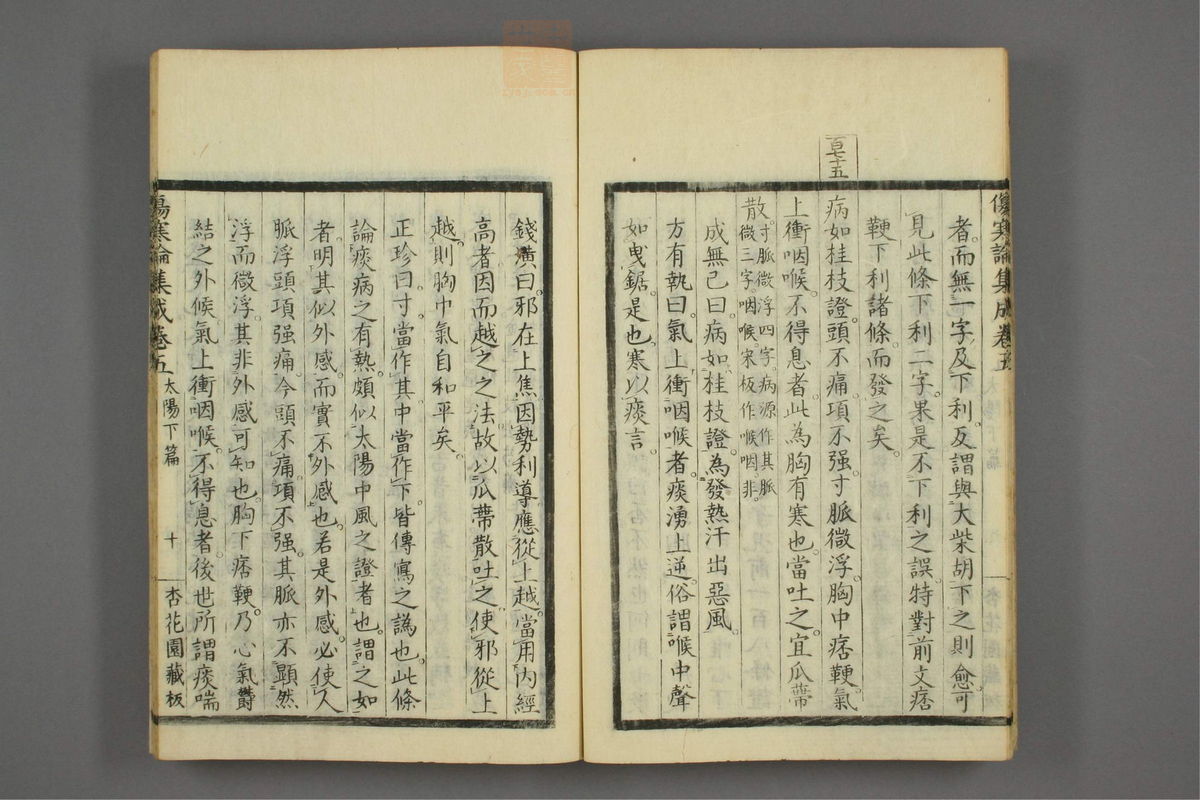 傷寒論集成卷五
百七十五
者。而無一字及下利。反謂與大柴胡下之則愈。可
見此條下利二字。果是不下利之誤。特對前文痞
鞕下利諸條。而發之矣。
病如桂枝證。頭不痛。項不强。寸脈微浮。胸中痞鞕。氣
上衝咽喉。不得息者。此為胸有寒也。當吐之。宜瓜蔕
散。寸脈微浮四字。病源作其脈微三字。咽喉。宋板作喉咽。非。
成無己曰。病如桂枝證。為發熱汗出惡風。
方有執曰。氣上衝咽喉者。痰湧上逆。俗謂喉中聲
如曳鋸是也。寒以痰言。
錢潢曰。邪在上焦。因勢利導。應從上越。當用內經
高者因而越之之法。故以瓜蔕散吐之。使邪從上
越。則胸中氣自和平矣。
正珍曰。寸。當作其。中當作下。皆傳寫之譌也。此條
論痰病之有熱。頗似太陽中風之證者也。謂之如
者。明其似外感。而實不外感也。若是外感。必使人
脈浮頭項强痛。今頭不痛。項不强。其脈亦不顯然
浮而微浮。其非外感可知也。胸下痞鞕。乃心氣鬱
結之外候。氣上衝咽喉。不得息者。後世所謂痰喘
傷寒論集成卷五 太陽下篇 十 杏花園藏板